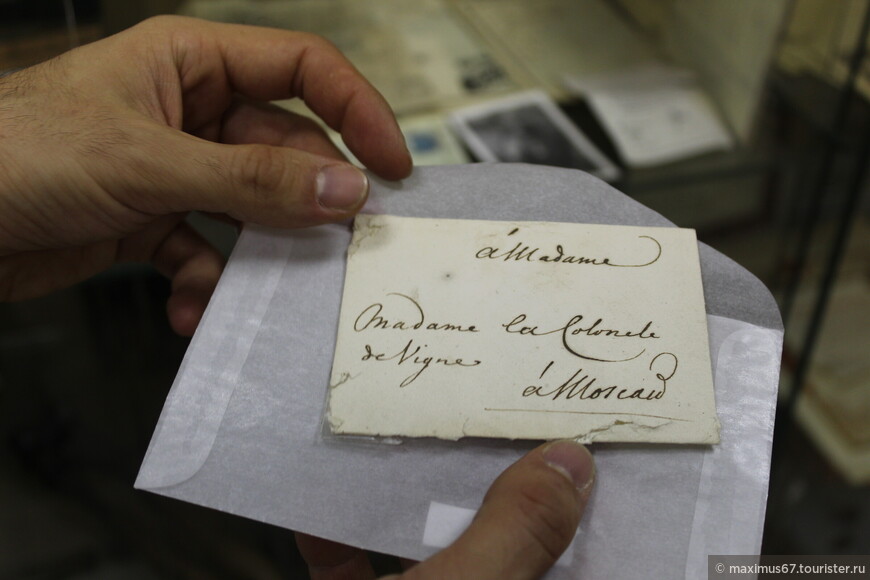 à Madame
Madame la Colonele
de Vigne
à Moscau
© maximus67.tourister.ru